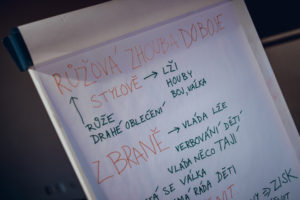 RŮŽOVÁ ZHOUBA DOBOJE
STYLOVĚ → LŽI
HOUBY
BOJ, VÁLKA
RŮŽE
DRAHÉ OBLEČENÍ
ZBRANĚ → VLÁDA LŽE
VERBOVÁNÍ DĚTÍ
VLÁDA NĚCO TAJÍ
SE VÁLKA
RÁDA DĚTI
ZISK